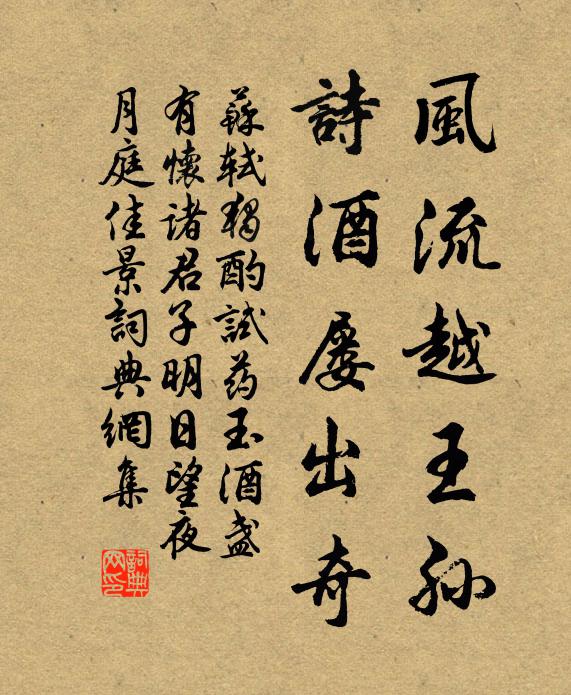 風流越王孫
詩酒屡出奇
蘇軾獨酌試药玉酒盏
有懷诸君子明日望夜
月庭佳景詞典網集
詞典网印